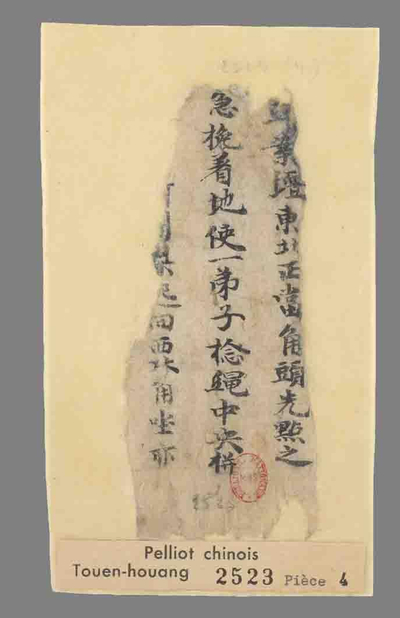 業壇東北正當角頭先點之
急挽着地使一弟子捻繩中央拼
起向西北角坐亦
Pelliot chinois
Touen-houang 2523 Pièce 4